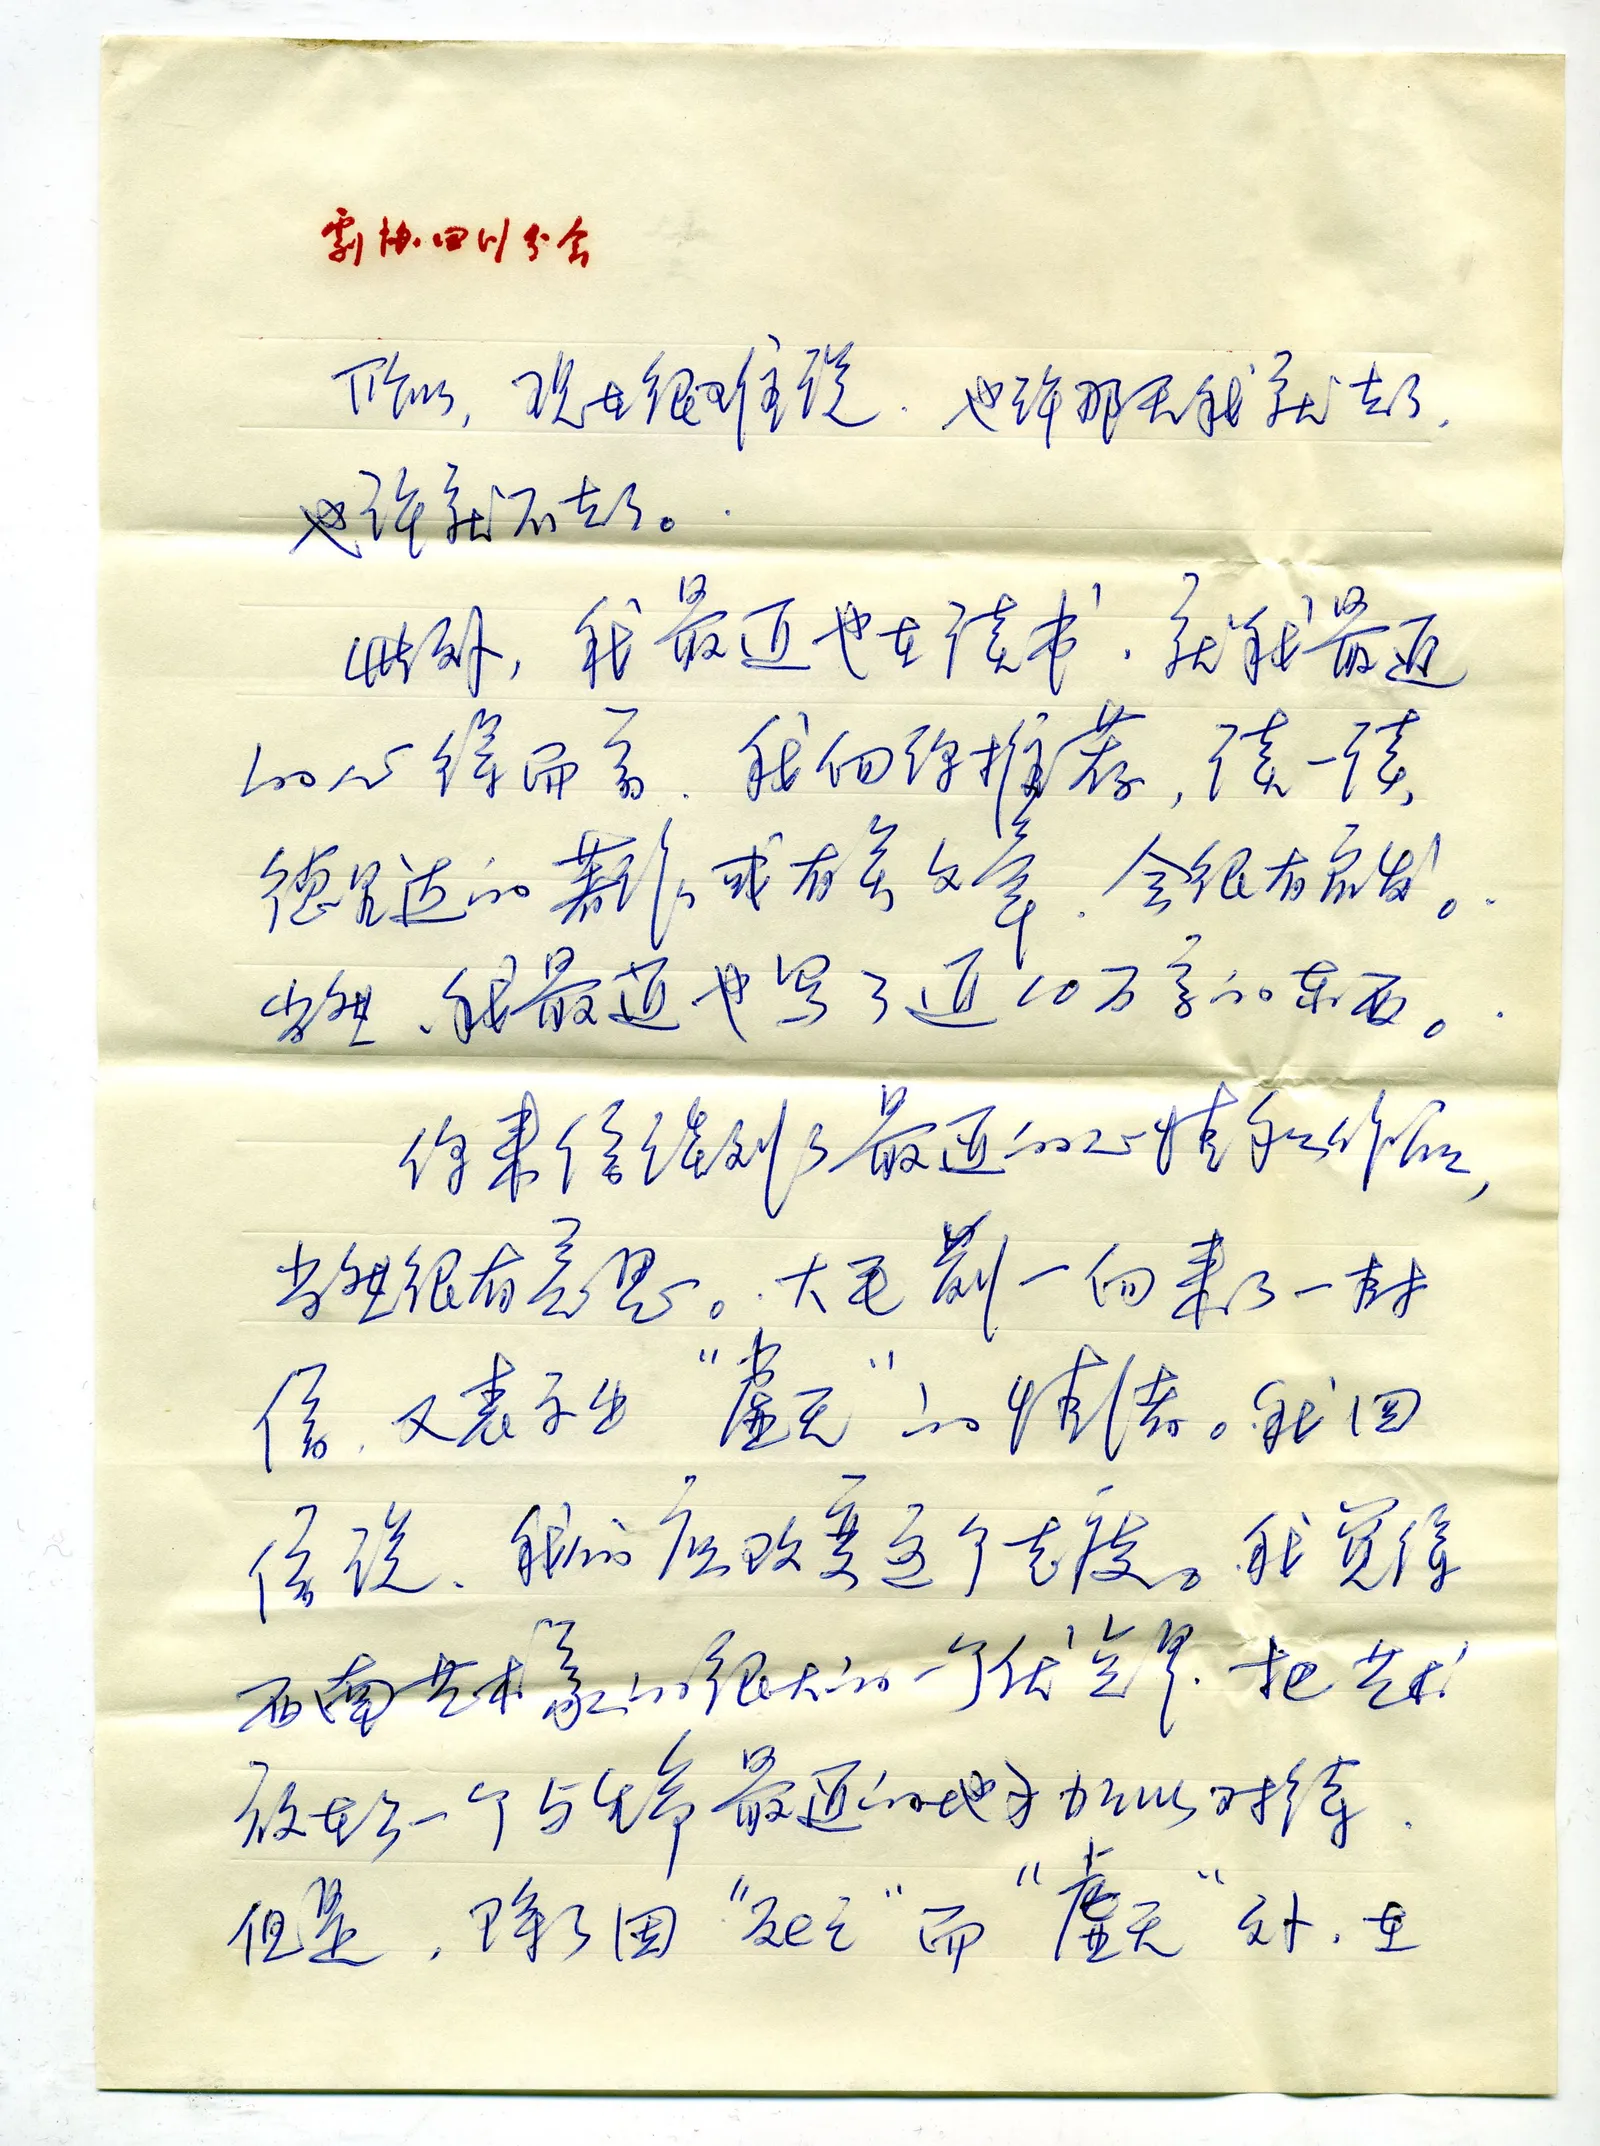 剧协四川分会
所以，现在很难说．也许那天我就去了，
也许就不去了。
此外，我最近也在读书，就我最近
的心得而言．我向你推荐，读一读，
德里达的著作或有关文章．会很有启发。
当然、我最近也写了近10万字的东西。
你来信谈到了最近的心情和作品，
当然很有意思。大毛前一向来了一封
信，又表示出“虚无”的情绪。我回
信说、我们应改变这个态度。我觉得
西南艺术家的很大的一个优势是．把艺术
放在了一个与生命最近的地方加以对待．
但是，除了因“死亡”而“虚无”外．在